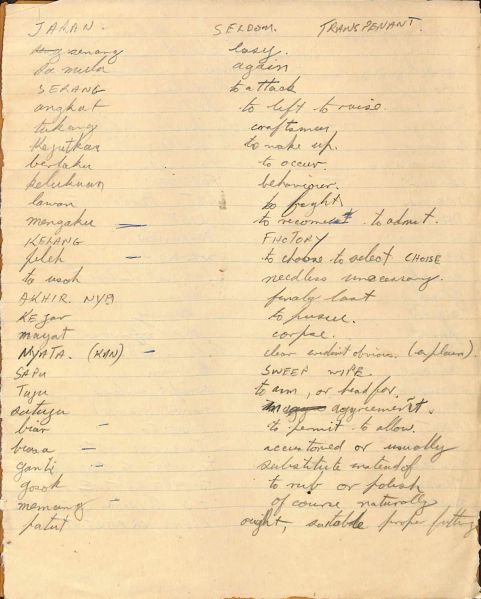 JARAN. SELDOM. TRANSPENANT.
senang easy.
again
SERANG to attack
angkat to lift to raise.
tukang craftsman
Kejutkan to wake up.
berlaku to occur.
kelukuan behaviour.
lawan to fight
mengaku — to admit.
KELANG FHOTORY
pileh — to choose to select CHOISE
ta usah needless unecessary.
AKHIR NYA finaly last
KEJAR to pursue.
mayat corpse.
NYATA. (KAN) — clear evident obvious. (explain).
SAPU SWEEP WIPE.
Tuju to aim, or head for.
sutuju aggriement.
biar — to permit to allow.
biasa — accustoned or usually
ganti — substitute instead of
gosok to rub or polish
memang — of course naturally
patut ought, suitable proper fitting